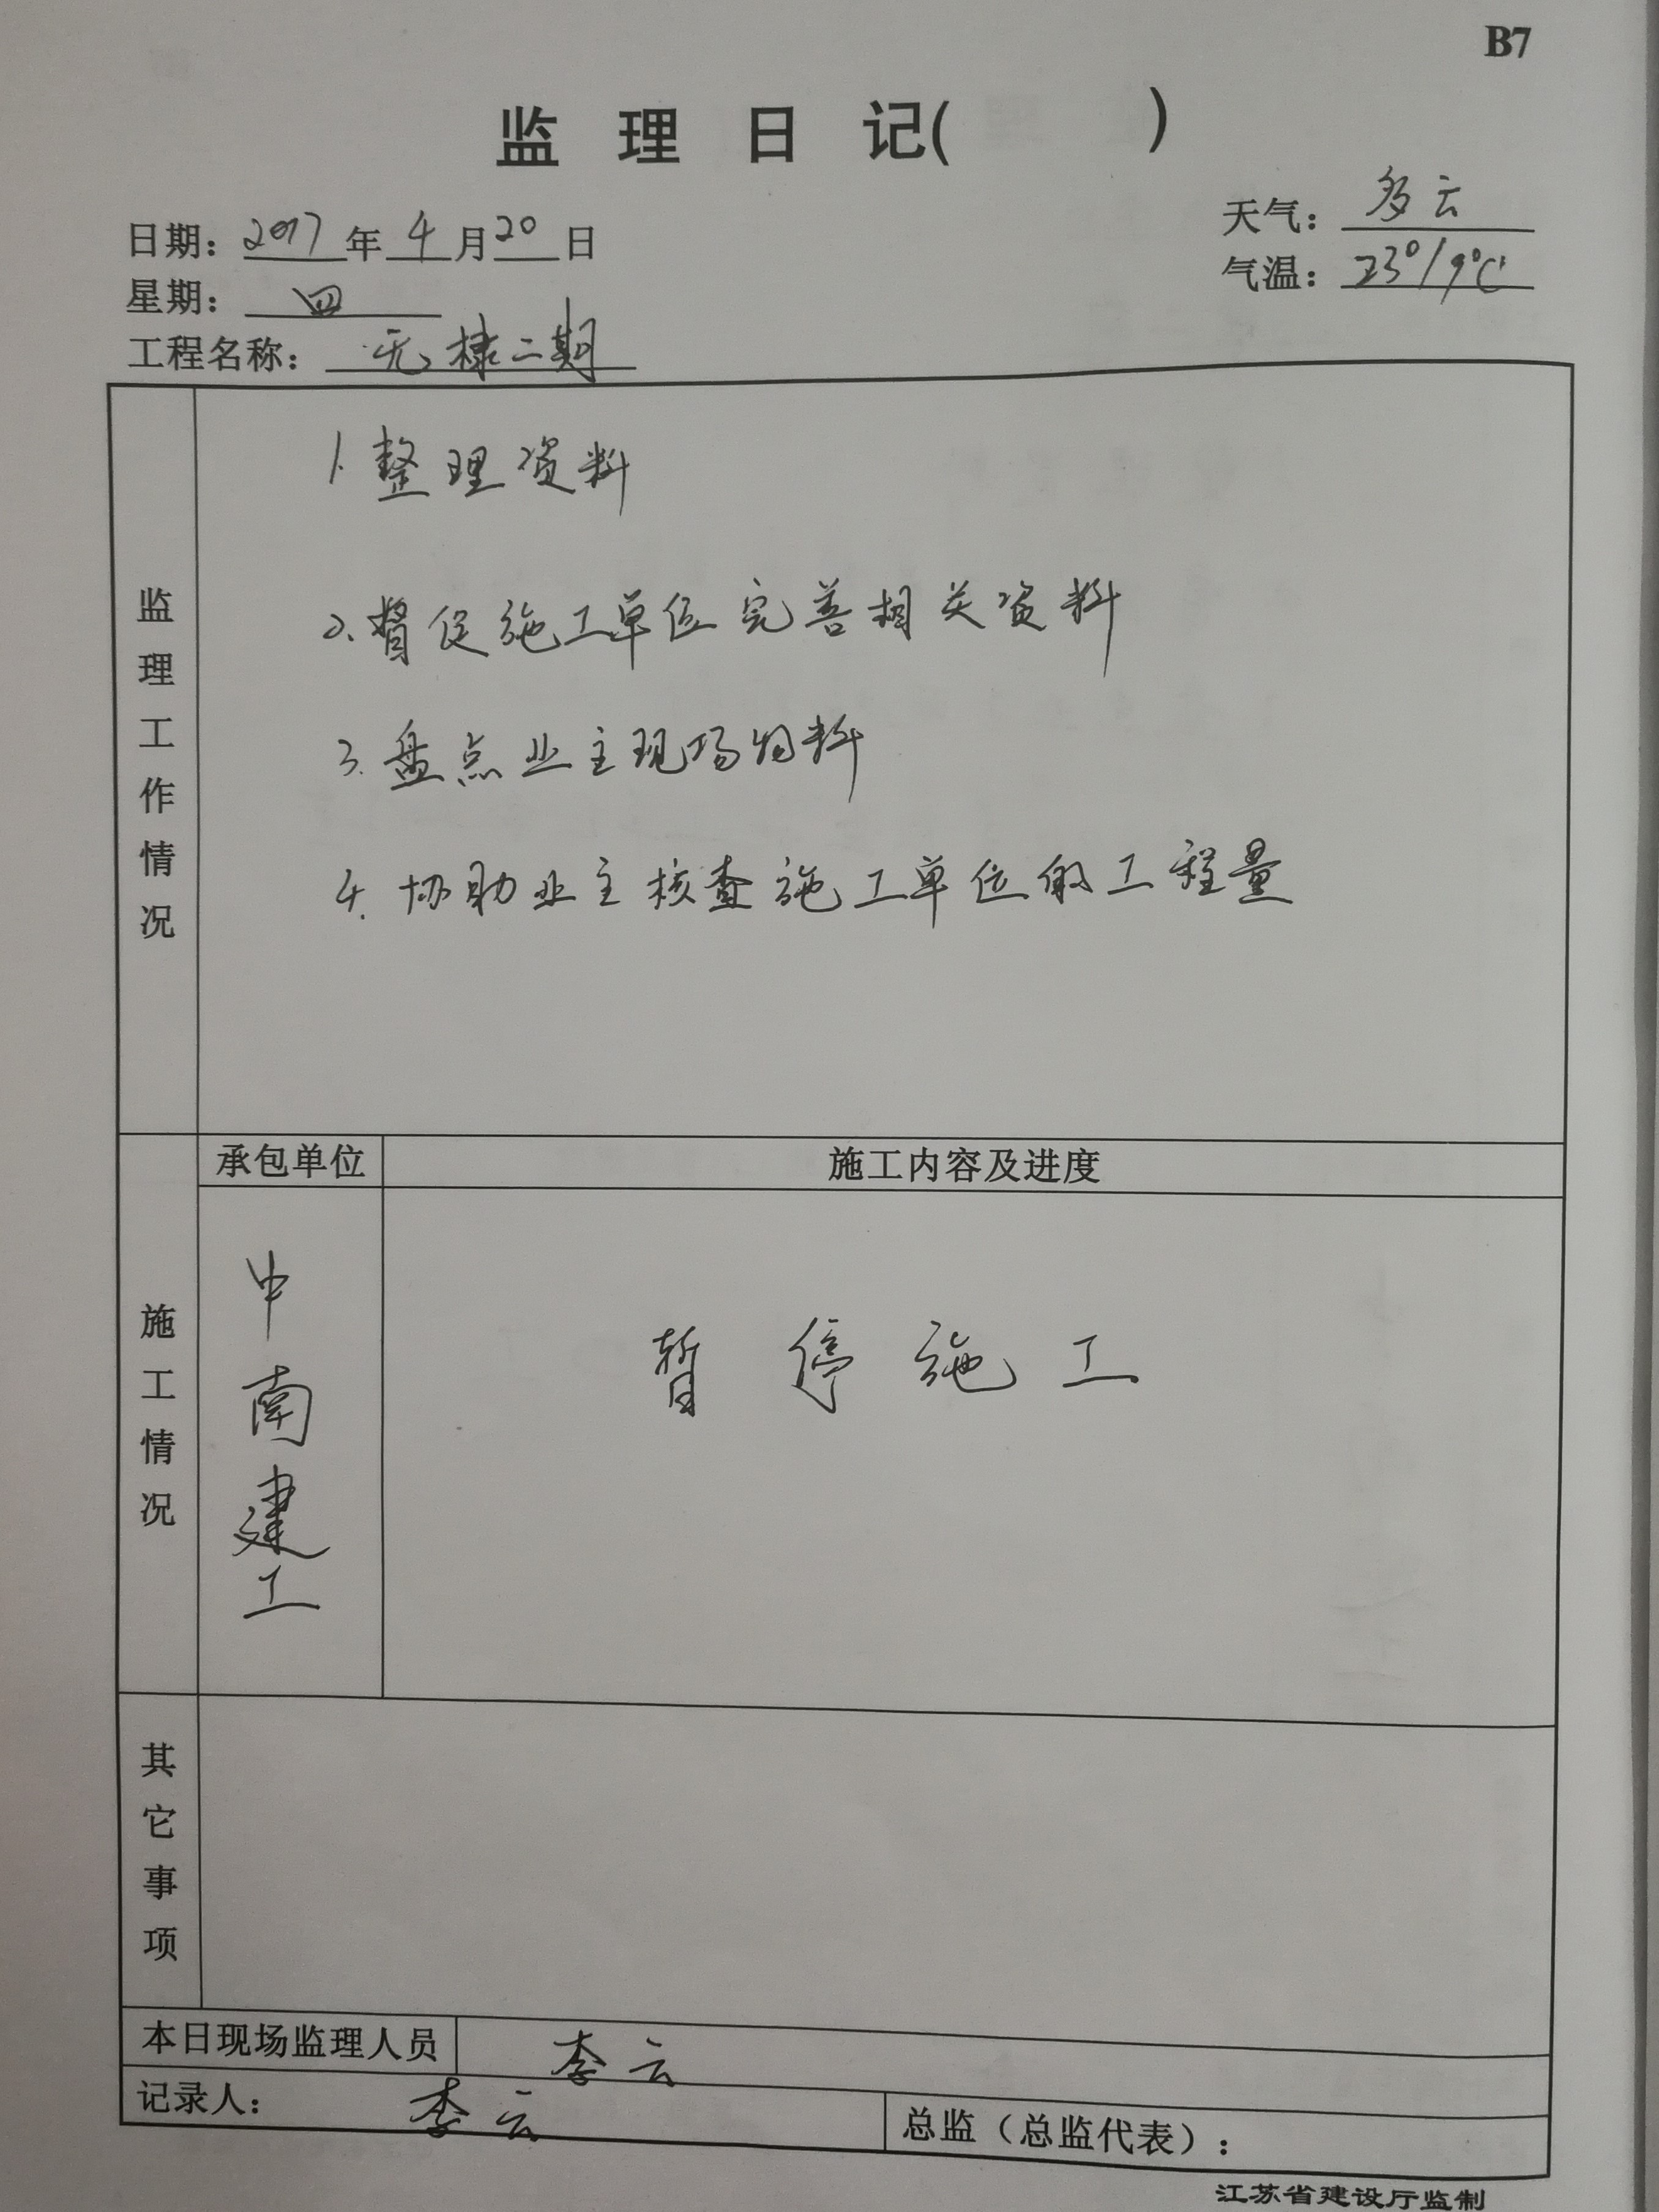 B7
监理日记( )
日期：2017年4月20日
天气：多云
星期：四
气温：23°/9℃
工程名称：无棣二期
监理工作情况
1.整理资料
2.督促施工单位完善相关资料
3.盘点业主现场物料
4.协助业主核查施工单位的工程量
施工情况
承包单位
施工内容及进度
中南建工
暂停施工
其它事项
本日现场监理人员 李云
记录人：李云
总监（总监代表）：
江苏省建设厅监制